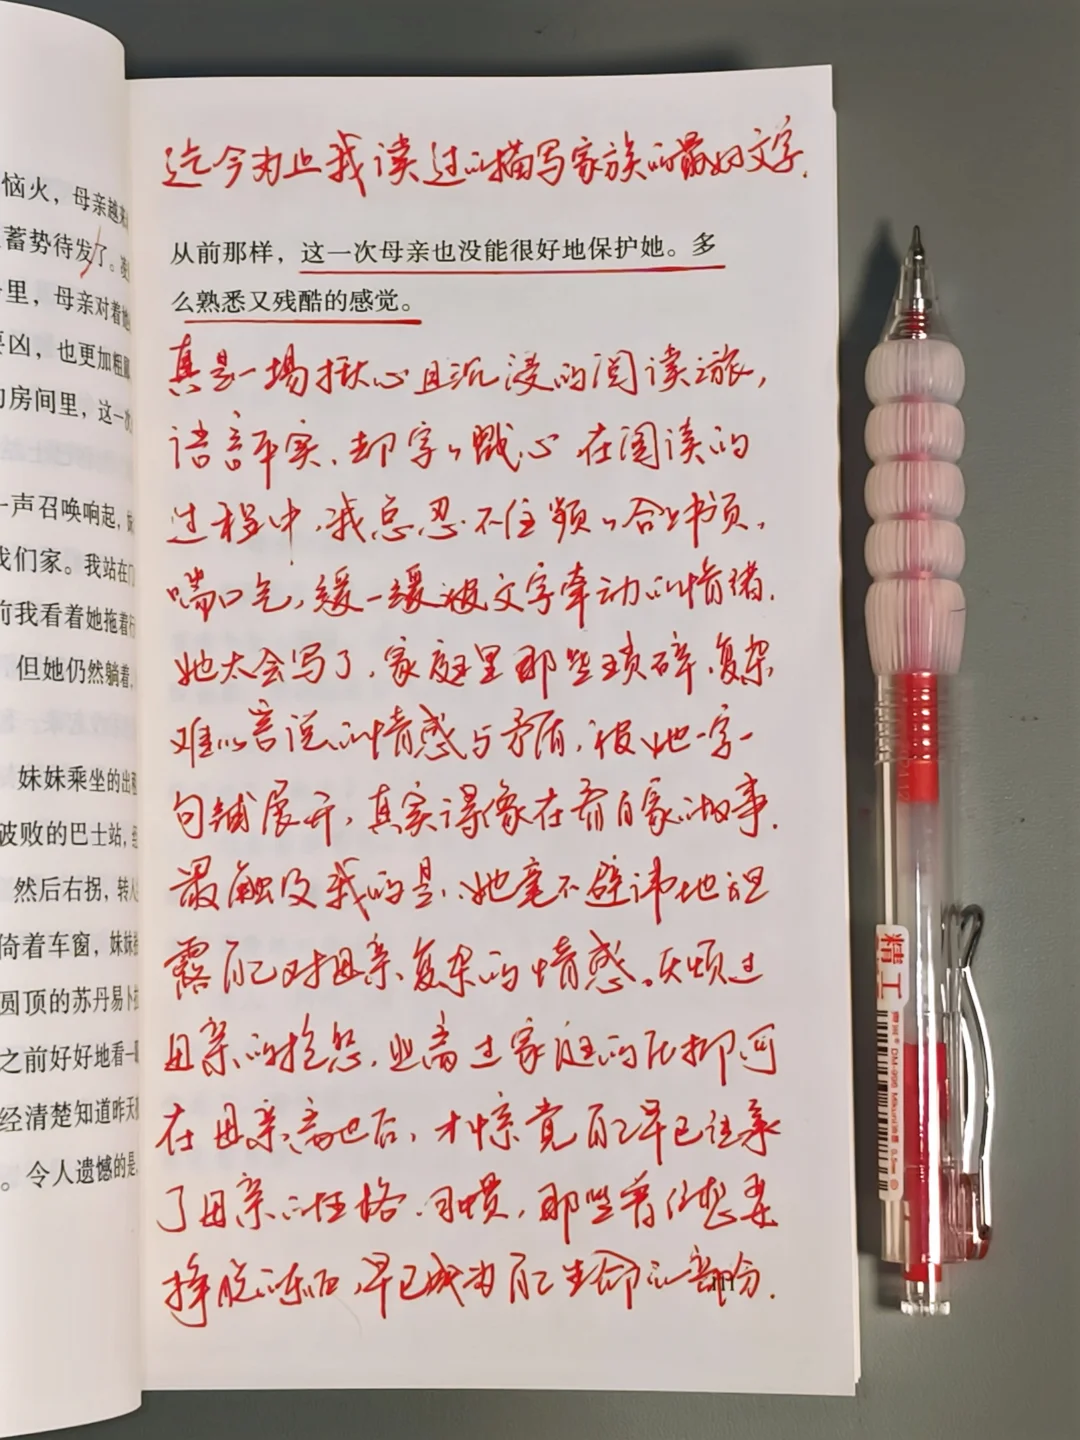 恼火，母亲越来
蓄势待发了。
里，母亲对着她
凶，也更加粗
房间里，这一次
一声召唤响起，
我们家。我站在门
前我看着她拖着行
但她仍然躺着，
妹妹乘坐的出租
破败的巴士站，
然后右拐，转入
倚着车窗，妹妹
圆顶的苏丹易卜拉
之前好好地看一眼
经清楚知道昨天
。令人遗憾的是，
迄今为止我读过的描写家族的最好文字.
从前那样，这一次母亲也没能很好地保护她。多
么熟悉又残酷的感觉。
真是一场揪心且沉浸的阅读之旅，
语言平实、却字々戳心 在阅读的
过程中，我总忍不住频々合上书页，
喘口气，缓一缓被文字牵动的情绪.
她太会写了，家庭里那些琐碎、复杂
难以言说的情感与矛盾，被她一字一
句铺展开，真实得像在看自家的故事.
最触及我的是，她毫不避讳地袒
露自己对母亲复杂的情感。厌烦过
母亲的抱怨，逃离过家庭的压抑 可
在母亲离世后，才惊觉自己早已继承
了母亲的性格、习惯，那些曾经想要
挣脱的东西，早已成为自己生命的一部份.
精工
DM-996
0.5mm